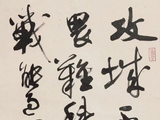 攻城不
畏難科
戰能過